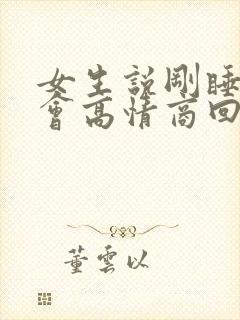 女生說剛睡
會高情商回
董雲以